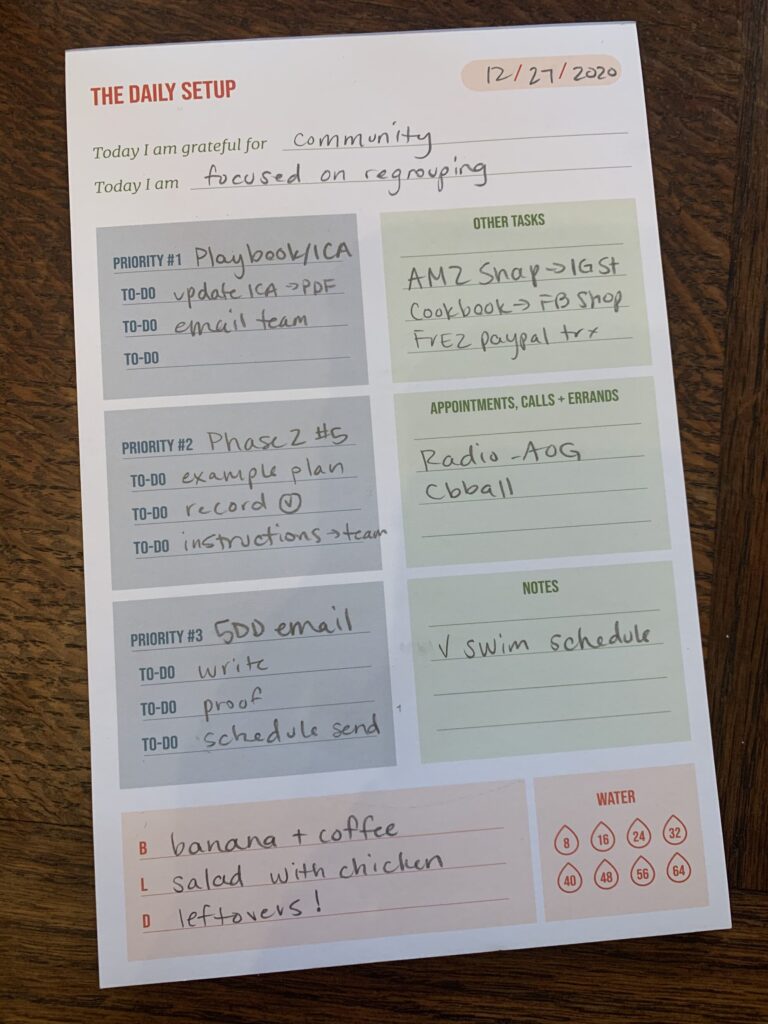 THE DAILY SETUP
12/27/2020
Today I am grateful for community
Today I am focused on regrouping
PRIORITY #1 Playbook/ICA
TO-DO update ICA → PDF
TO-DO email team
TO-DO
PRIORITY #2 Phase 2 #5
TO-DO example plan
TO-DO record ✓
TO-DO instructions → team
PRIORITY #3 5DD email
TO-DO write
TO-DO proof
TO-DO schedule send
OTHER TASKS
AMZ Snap → IG St
Cookbook → FB Shop
FrEZ paypal trx
APPOINTMENTS, CALLS + ERRANDS
Radio - AOG
Cbball
NOTES
✓ swim schedule
B banana + coffee
L salad with chicken
D leftovers!
WATER
8 16 24 32
40 48 56 64